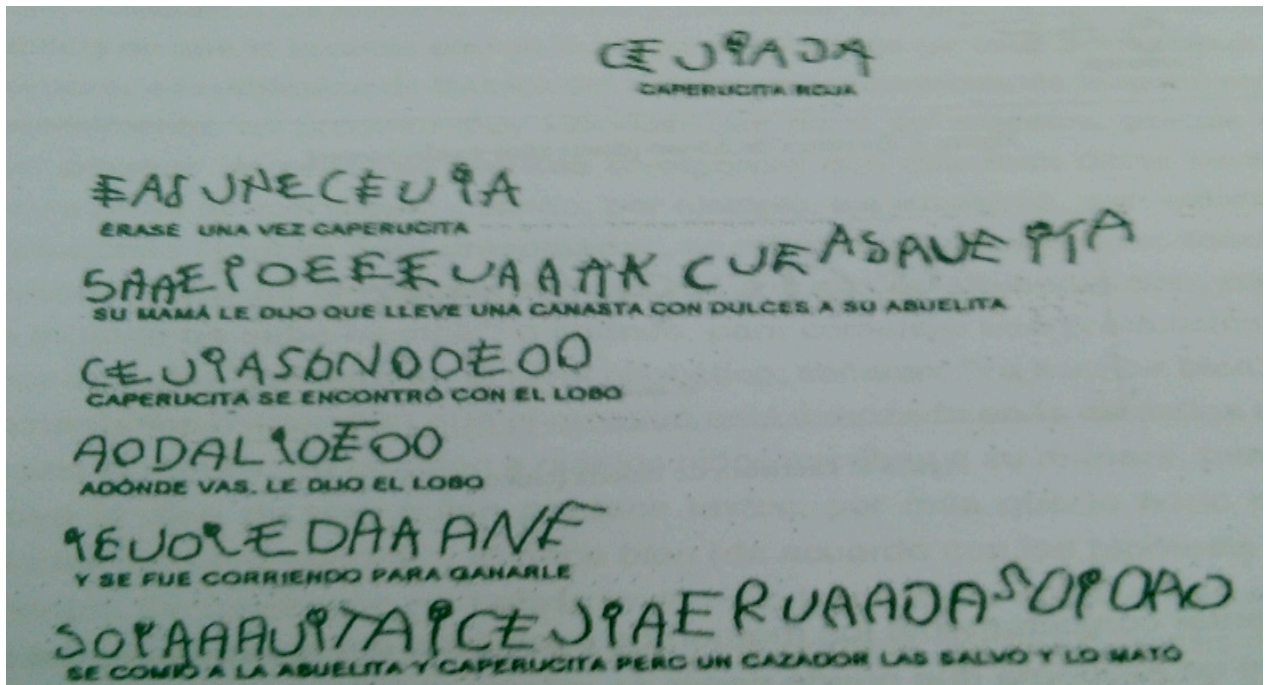 CEJIAJA
CAPERUCITA ROJA
EAS UNECEUIA
ÉRASE UNA VEZ CAPERUCITA
SAAEIOEEEUAAAA CUEASAUEITA
SU MAMÁ LE DIJO QUE LLEVE UNA CANASTA CON DULCES A SU ABUELITA
CEUIASONDOEOO
CAPERUCITA SE ENCONTRÓ CON EL LOBO
AODALIOEOO
ADÓNDE VAS. LE DIJO EL LOBO
IEUOIEDAAANE
Y SE FUE CORRIENDO PARA GANARLE
SOIAAAUITAICEJIAERUAADASOIOAO
SE COMIÓ A LA ABUELITA Y CAPERUCITA PERO UN CAZADOR LAS SALVO Y LO MATÓ